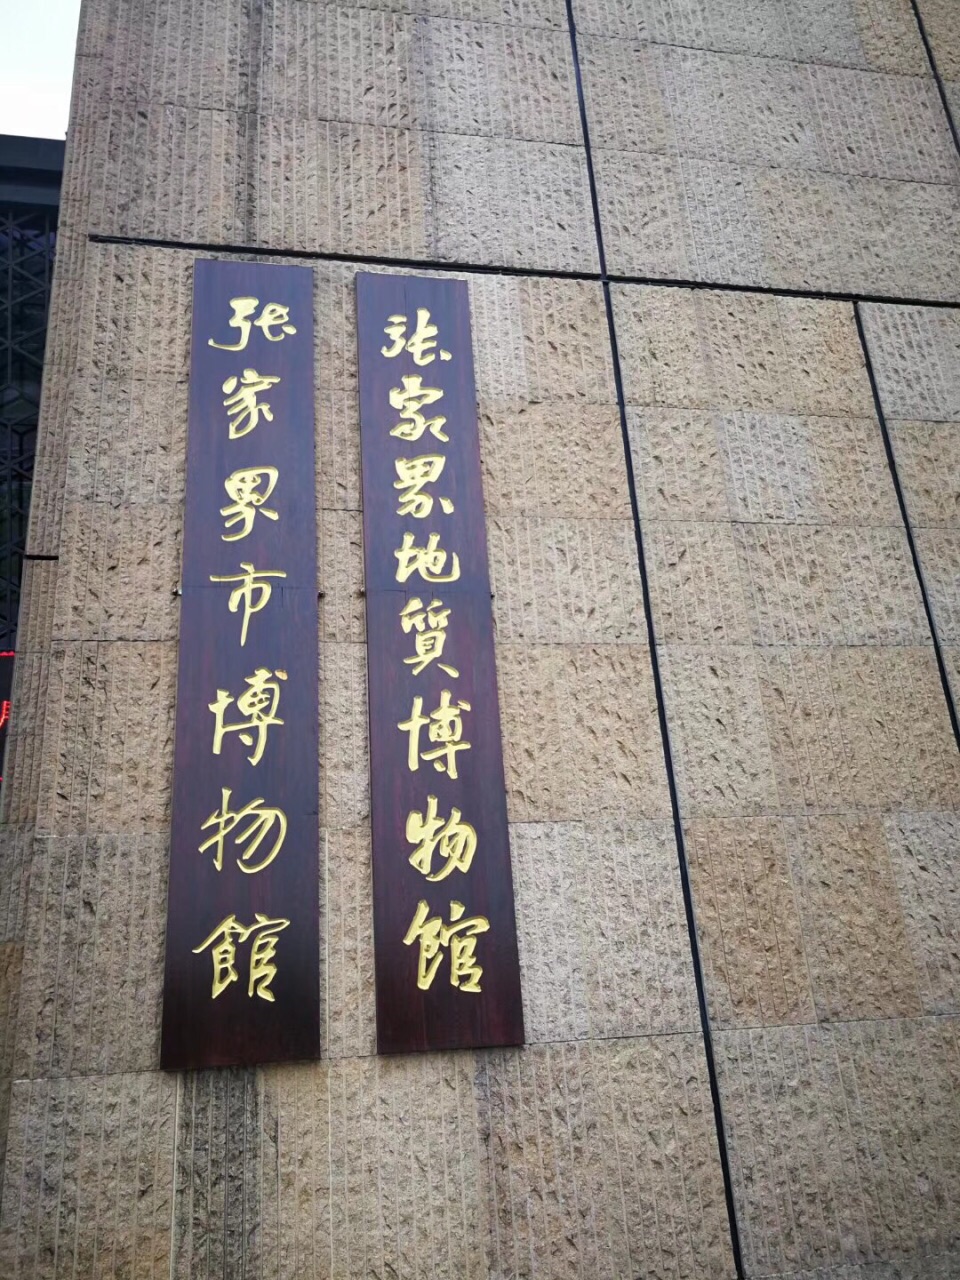 张家界市博物館
张家界地質博物館